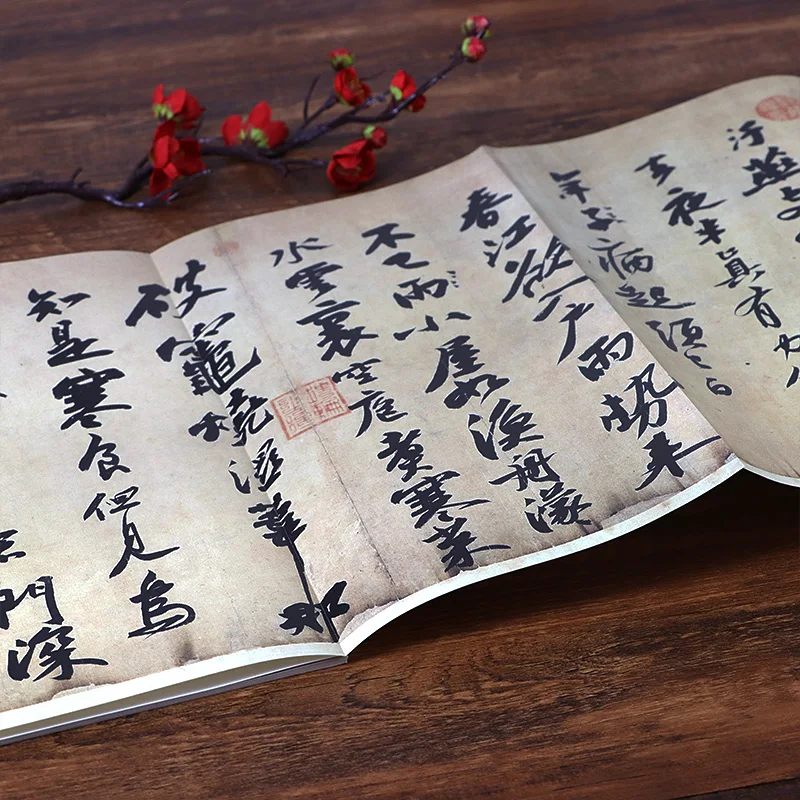 汙燕支
去夜半真有力
年子病起須已白
春江欲入戶雨勢來
不已雨小屋如漁舟濛
水雲裏空庖煮寒菜
破竈燒濕葦那
知是寒食但見烏
門深